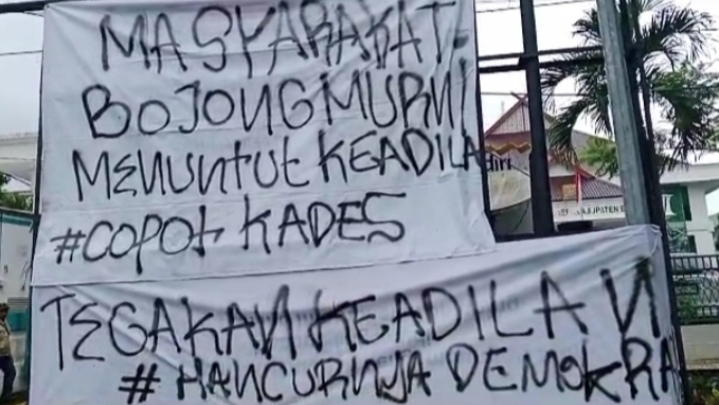 MASYARAKAT
BOJONG MURNI
MENUNTUt KEADILA
#COPOt KADES
TEGAKAN KEADILAN
# HANCURNJA DEMOKRA
diri
ABUPATEN